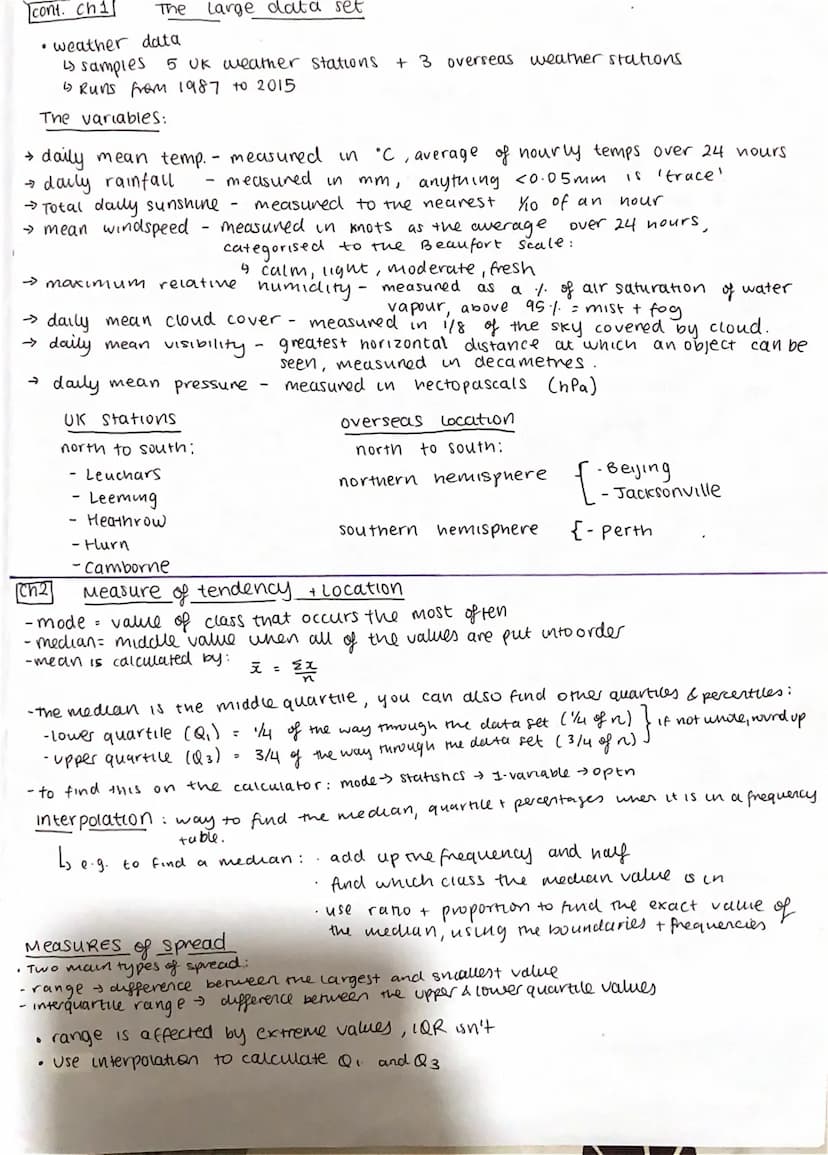 cont. Ch1 The Large data set
• weather data
↳ samples 5 UK weather stations + 3 overseas weather stations
↳ Runs from 1987 to 2015
The variables:
→ daily mean temp. - measured in °C, average of hourly temps over 24 hours
→ daily rainfall - measured in mm, anything <0.05mm is 'trace'
→ Total daily sunshine - measured to the nearest 1/10 of an hour
→ mean windspeed - measured in knots as the average over 24 hours,
categorised to the Beaufort scale:
↳ calm, light, moderate, fresh
→ maximum relative humidity - measured as a % of air saturation of water
vapour, above 95% = mist + fog
→ daily mean cloud cover - measured in 1/8 of the sky covered by cloud.
→ daily mean visibility - greatest horizontal distance at which an object can be
seen, measured in decametres.
→ daily mean pressure - measured in hectopascals (hPa)
UK Stations
north to south:
- Leuchars
- Leeming
- Heathrow
- Hurn
- Camborne
overseas Location
north to south:
northern hemisphere { - Beijing
- Jacksonville
southern hemisphere { - Perth
Ch2 Measure of tendency + Location
- mode = value of class that occurs the most often
- median = middle value when all of the values are put into order
- mean is calculated by: x̄ = Σx/n
- The median is the middle quartile, you can also find other quartiles & percentiles:
- lower quartile (Q₁) = 1/4 of the way through the data set (1/4 of n) } if not whole, round up
- upper quartile (Q₃) = 3/4 of the way through the data set (3/4 of n)
- to find this on the calculator: mode → statistics → 1-variable → optn
interpolation: way to find the median, quartile + percentages when it is in a frequency
table.
↳ e.g. to find a median: · add up the frequency and half
· And which class the median value is in
· use ratio + proportion to find the exact value of
the median, using the boundaries + frequencies
Measures of Spread
• Two main types of spread:
- range → difference between the largest and smallest value
- interquartile range → difference between the upper & lower quartile values
• range is affected by extreme values, IQR isn't
• use interpolation to calculate Q₁ and Q₃